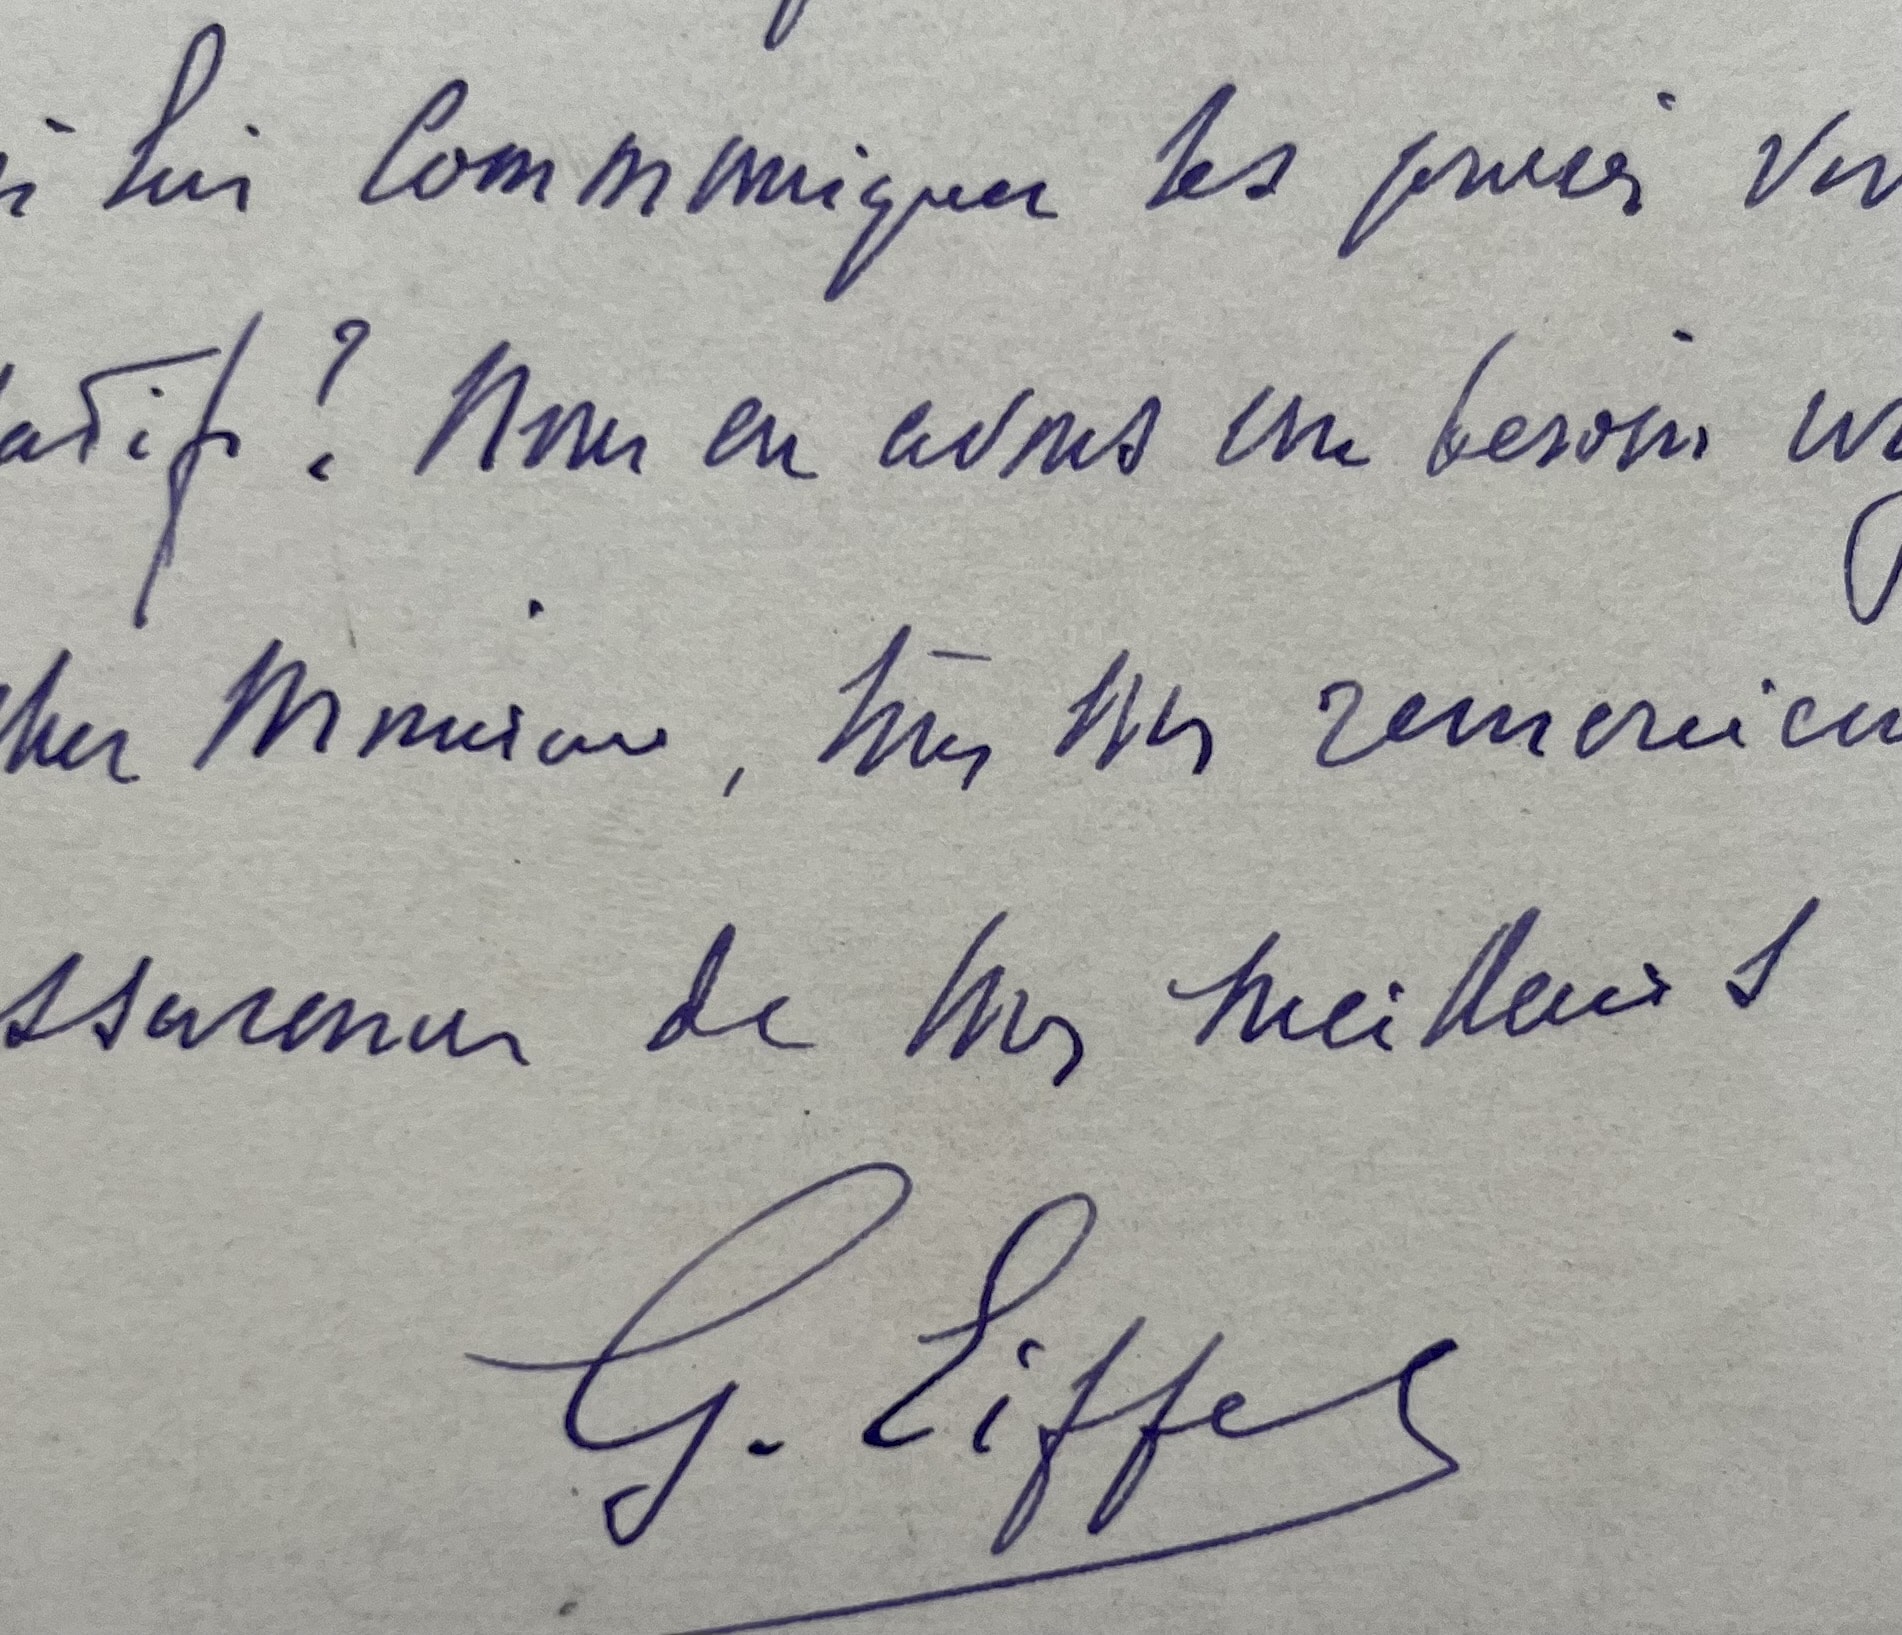 lui communiquer les procès ver
? Nous en avons un besoin urg
cher Monsieur, tous mes remerciem
ssurance de mes meilleurs s
G. Eiffel